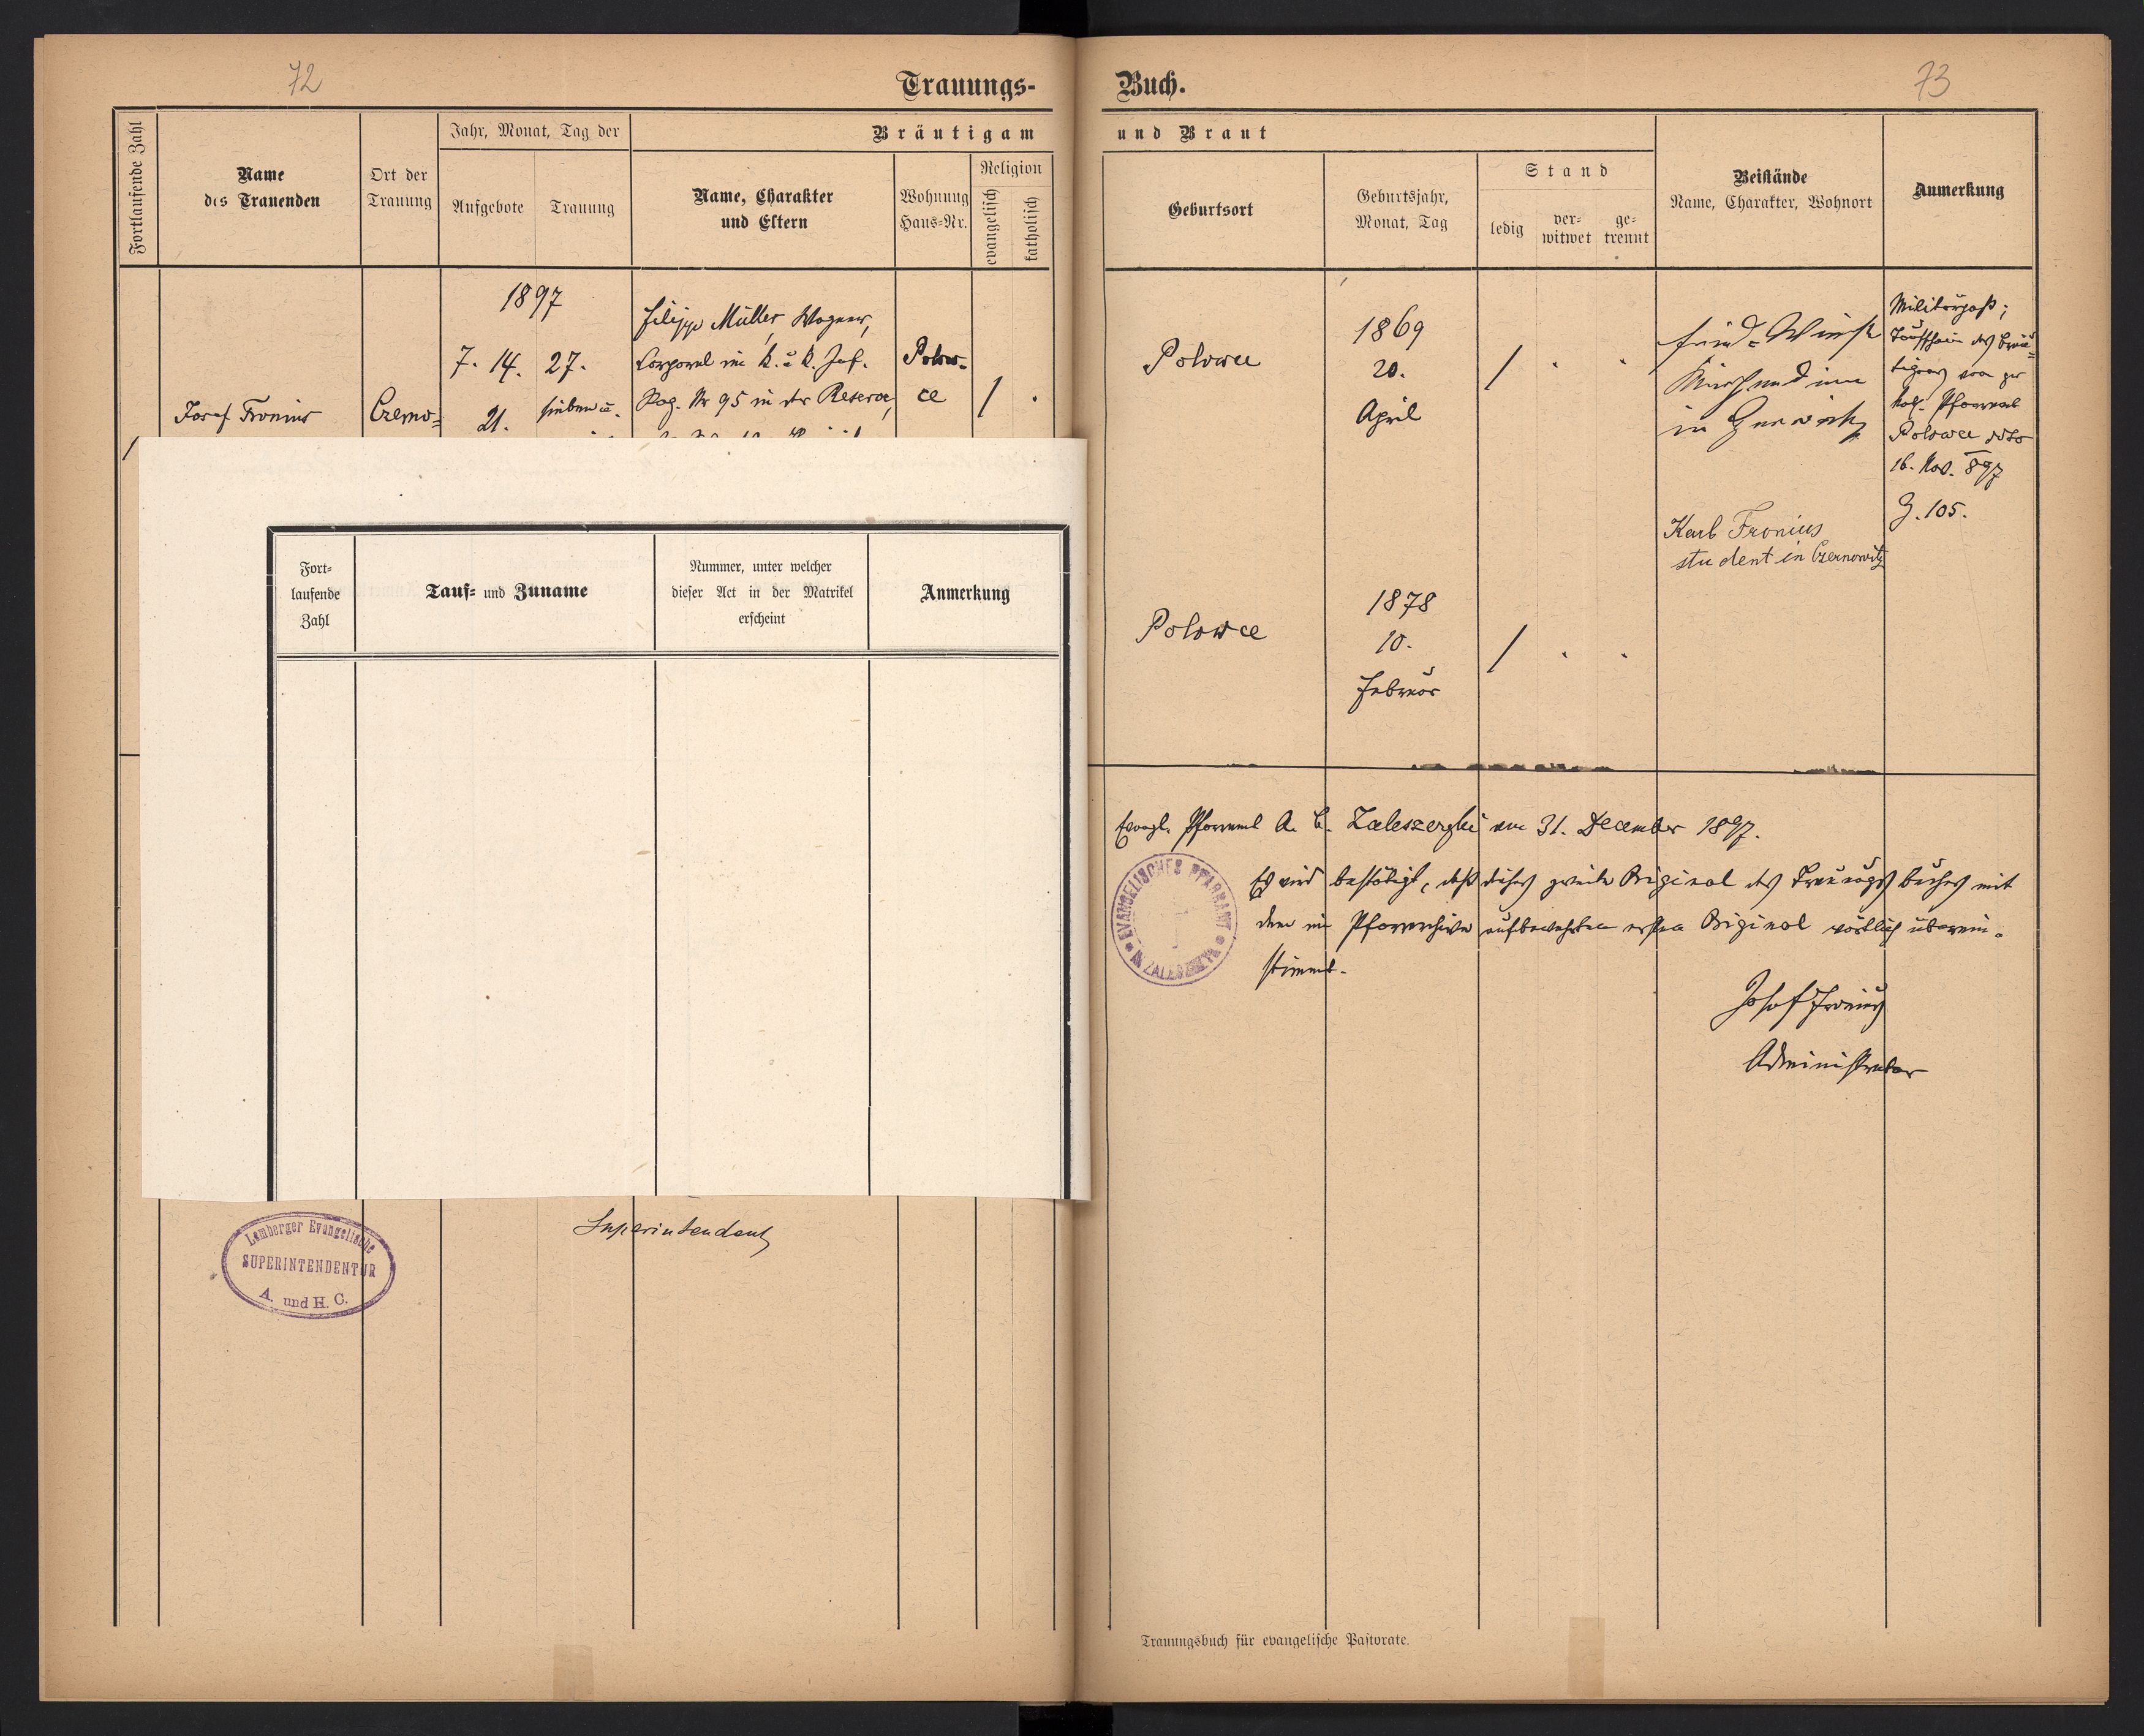 72
Trauungs-
Fortlaufende Zahl
Name
des Trauenden
Ort der
Trauung
Jahr, Monat, Tag der
Aufgebote
Trauung
Bräutigam
Name, Charakter
und Eltern
Wohnung
Haus-Nr.
Religion
evangelisch
katholisch
Josef Fronius
Czerno-
1897
7. 14.
21.
27.
sieben u.
Filipp Müller, Wagner,
Corporal im k. u. k. Inf.
Reg. Nr 95 in der Reserve,
Polow-
ce
/
Fort-
laufende
Zahl
Tauf- und Zuname
Nummer, unter welcher
dieser Act in der Matrikel
erscheint
Anmerkung
Superintendent
Lemberger Evangelische
SUPERINTENDENTUR
A. und H. C.
73
Buch.
und Braut
Geburtsort
Geburtsjahr,
Monat, Tag
Stand
ledig
ver-
witwet
ge-
trennt
Beistände
Name, Charakter, Wohnort
Anmerkung
Polowce
1869
20.
April
/
in
Karl Fronius
student in Czernowitz
Militärpaß;
Taufschein des Bräu-
tigams vom gr.
kath. Pfarramt
Polowce ddto
16. Nov. 897
Z. 105.
Polowce
1878
10.
Februar
/
Evangl. Pfarramt A. B. Zaleszczyki am 31. December 1897.
Es wird bestätigt, daß dieses zweite Original des Trauungsbuches mit
dem im Pfarrarchive aufbewahrten ersten Original wörtlich überein-
stimmt.
EVANGELISCHES PFARRAMT
Josef Fronius
Administrator
Trauungsbuch für evangelische Pastorate.